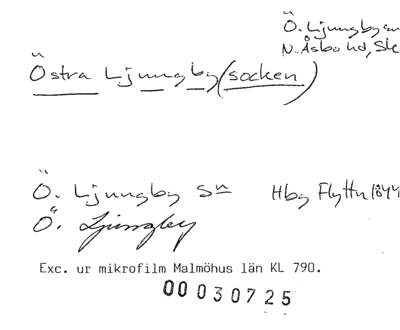 Ö. Ljungby sn
N. Åsbo hd, Sk
Östra Ljungby (socken)
Ö. Ljungby sn Hbg Flyttn 1844
Ö. Ljungby
Exc. ur mikrofilm Malmöhus län KL 790.
00030725